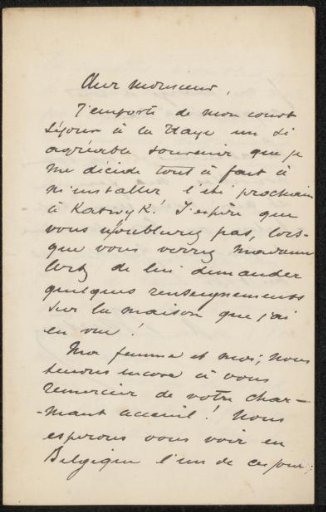 Cher monsieur,
J'emporte de mon court
séjour à la Haye un si
agréable souvenir que je
me décide tout à fait à
m'installer l'été prochain
à Katwyk! J'espère que
vous n'oublierez pas, lors-
que vous verrez madame
de lui demander
quelques renseignements
sur la maison que j'ai
en vue!
Ma femme et moi, nous
tenons encore à vous
remercier de votre char-
-mant acceuil! Nous
esperons vous voir en
Belgique l'un de ces jours,